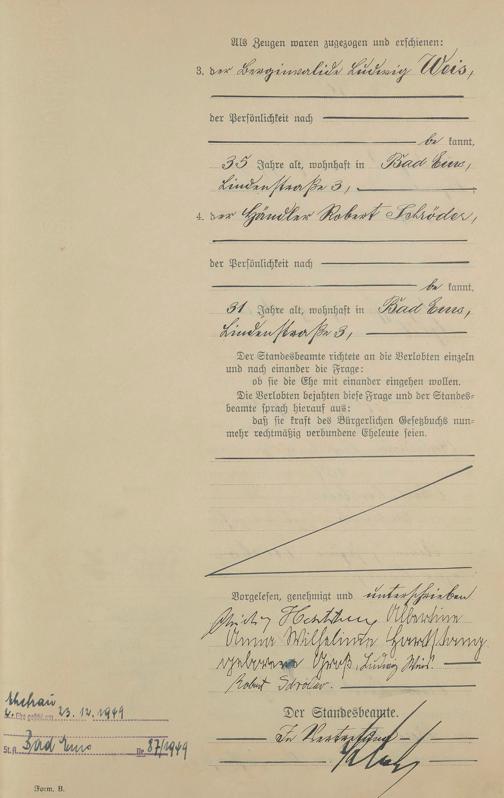 Als Zeugen waren zugezogen und erschienen:
3. der Berginvalide Ludwig Weis,
der Persönlichkeit nach
be kannt,
35 Jahre alt, wohnhaft in Bad Ems,
Lindenstraße 3,
4. der Händler Robert Schröder,
der Persönlichkeit nach
be kannt,
31 Jahre alt, wohnhaft in Bad Ems,
Lindenstraße 3,
Der Standesbeamte richtete an die Verlobten einzeln
und nach einander die Frage:
ob sie die Ehe mit einander eingehen wollen.
Die Verlobten bejahten diese Frage und der Standes-
beamte sprach hierauf aus:
daß sie kraft des Bürgerlichen Gesetzbuchs nun-
mehr rechtmäßig verbundene Eheleute seien.
Vorgelesen, genehmigt und unterschrieben
Albertine
Anna Wilhelmine Hartstang
geborene Groß, Ludwig Weis.
Robert Schröder.
Der Standesbeamte.
In Vertretung
Ehefrau
23.12.1949
St.A. Bad Ems Nr. 87/1949
Form. B.